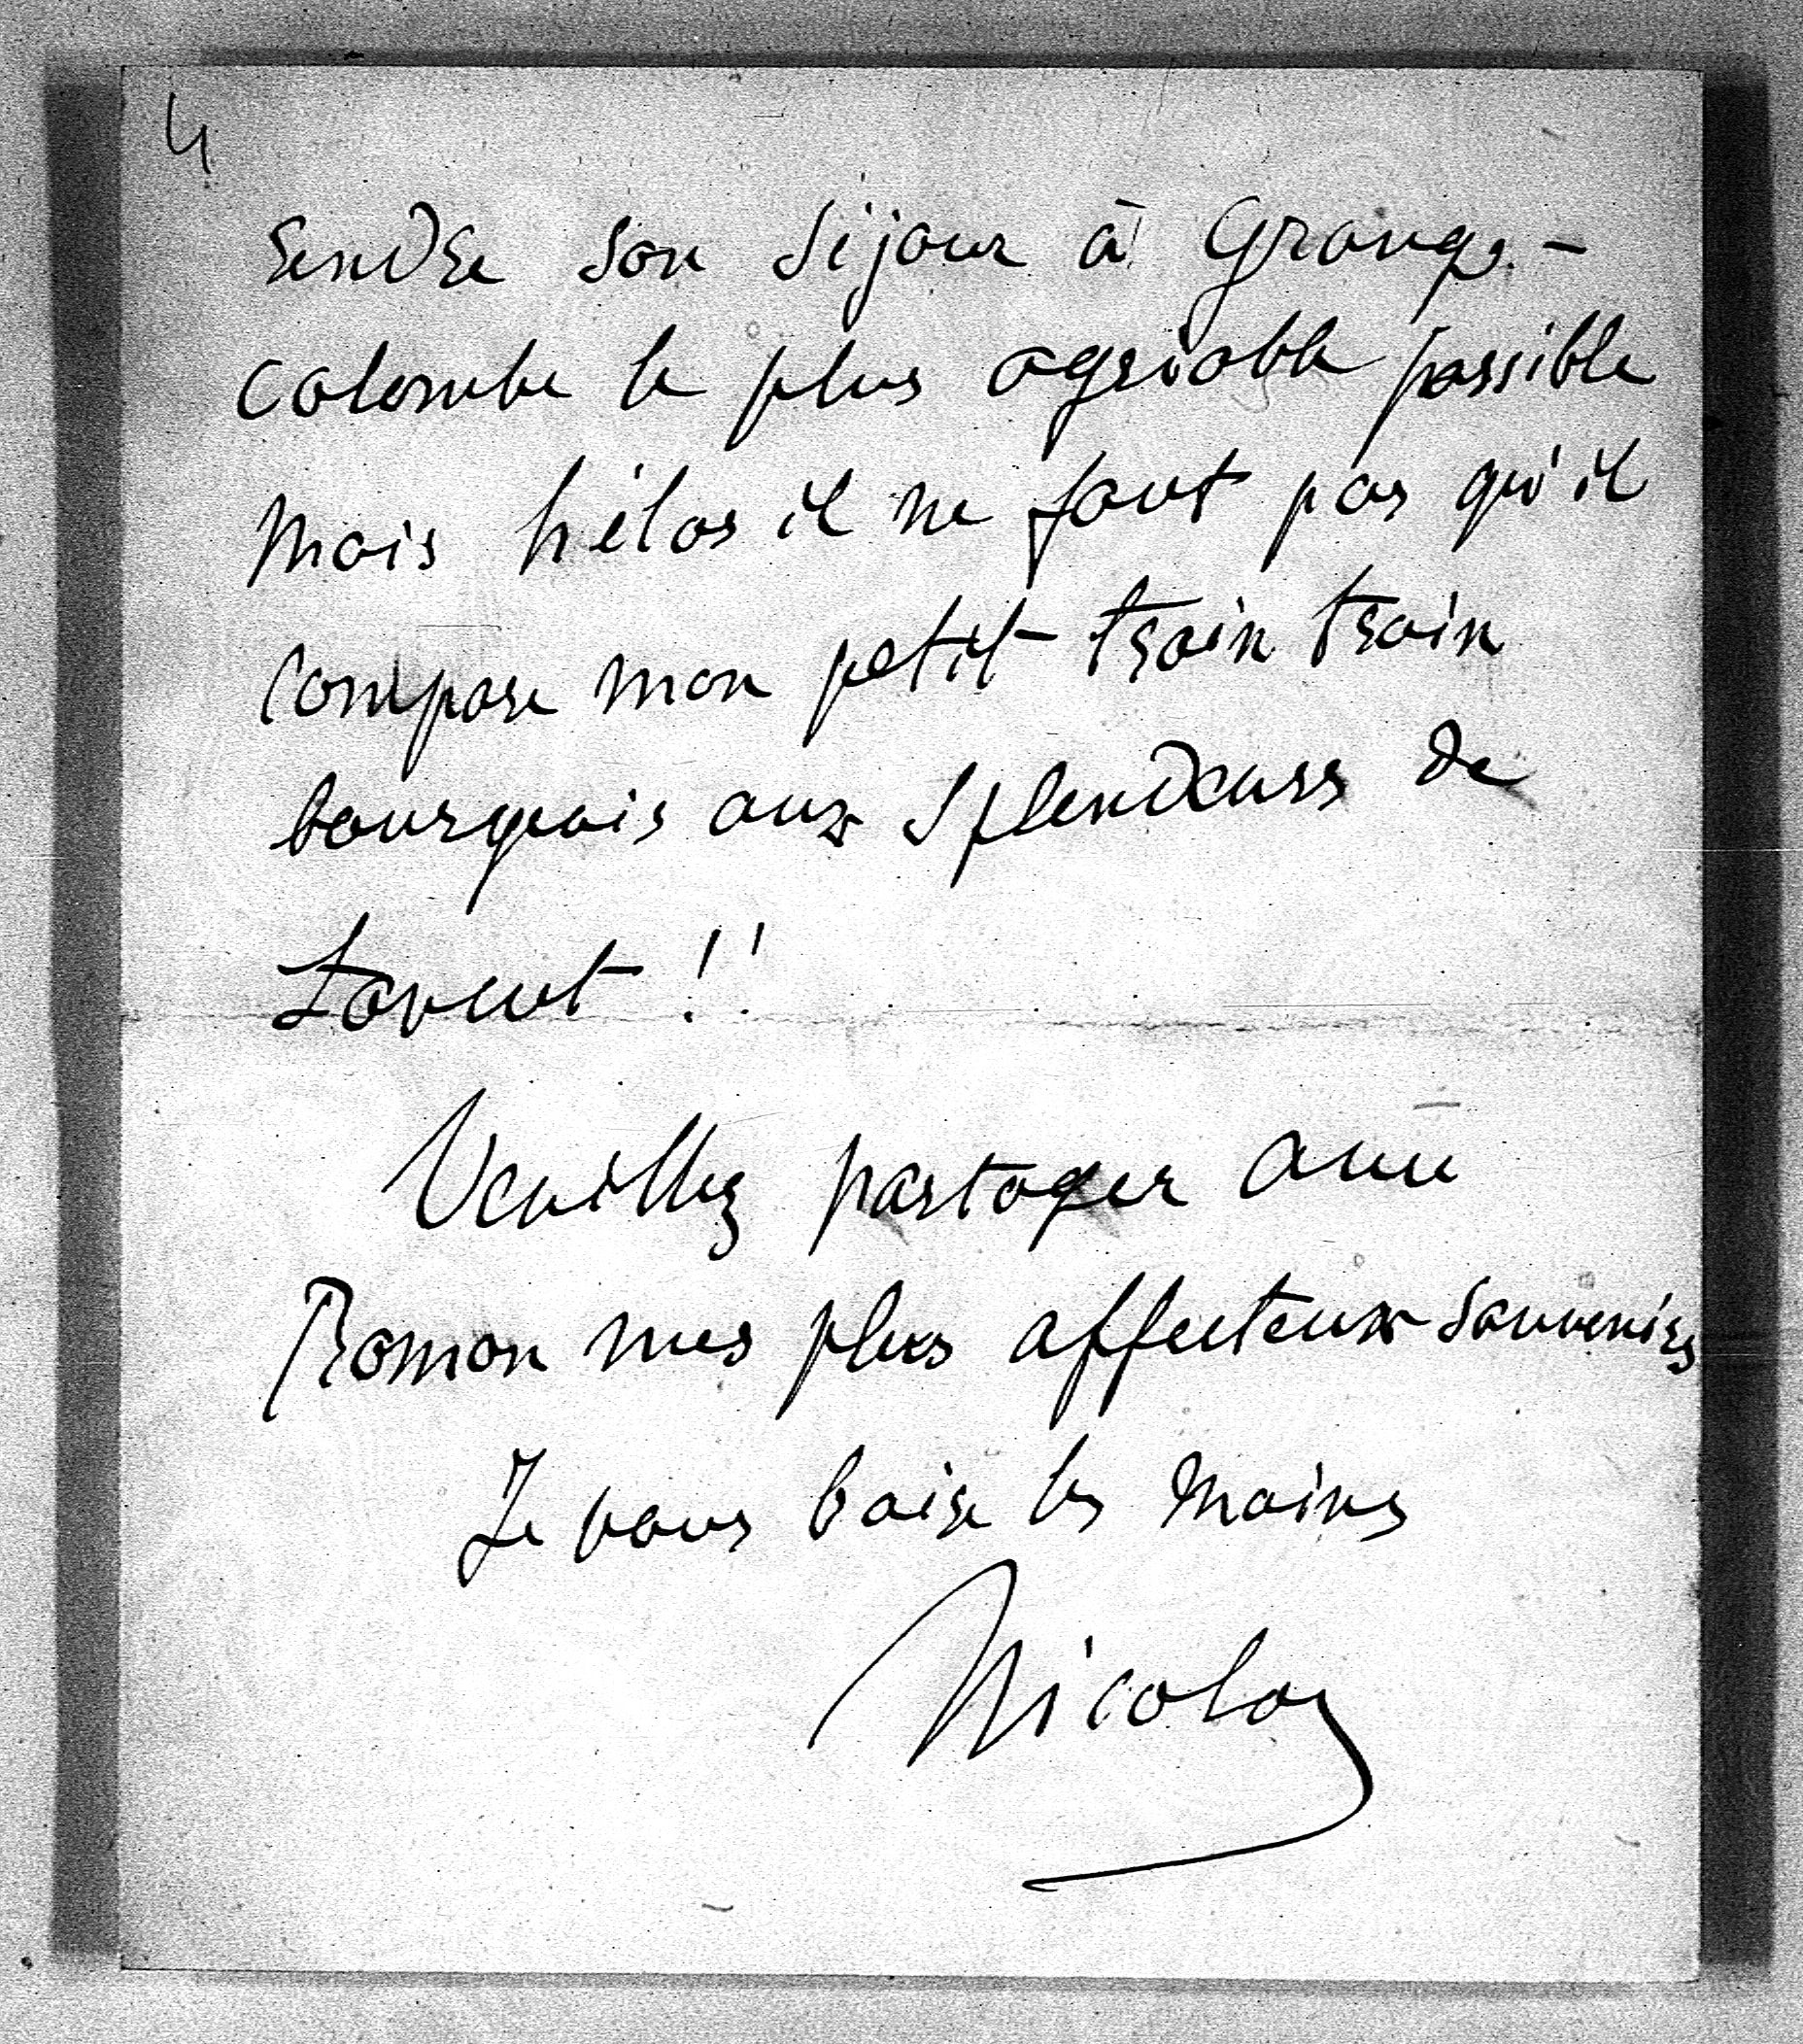 4
rendre son séjour à Grange-
colombe le plus agréable possible
mais hélas il ne faut pas qu'il
compare mon petit train train
bourgeois aux splendeurs de
Lancut !!
Veuillez partager avec
Roman mes plus affectueux souvenirs
Je vous baise les mains
Nicolas